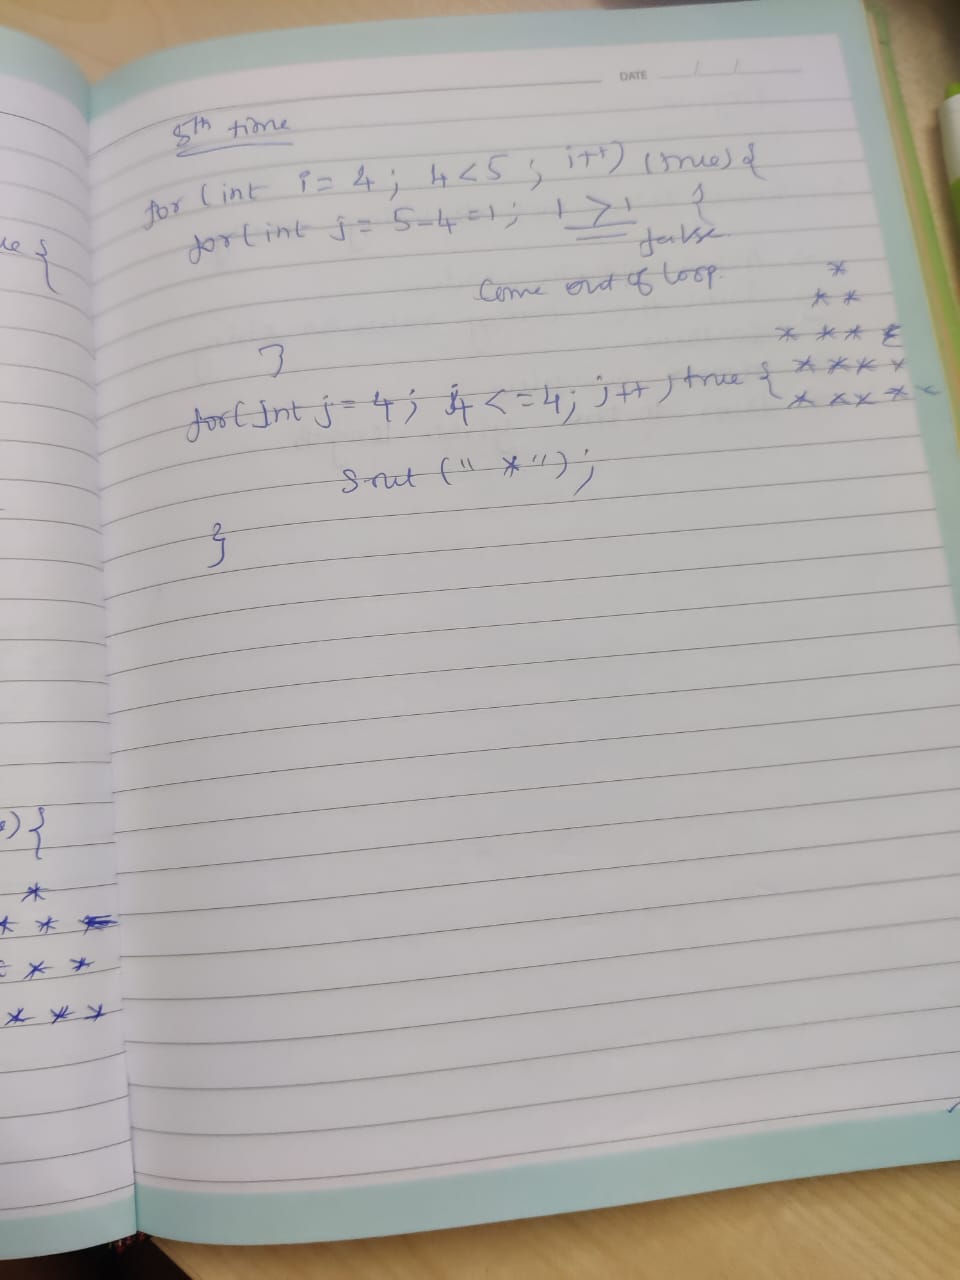 DATE / /
5th time
for (int i = 4; 4 < 5; i++) (true) {
for (int j = 5-4=1; 1 > 1 {
false
Come out of loop.
*
* *
* * * *
}
for (int j = 4; 4 <= 4; j++) true {
* * * *
* * * * *
Sout (" * ");
}
{
) {
*
* *
* *
* * *